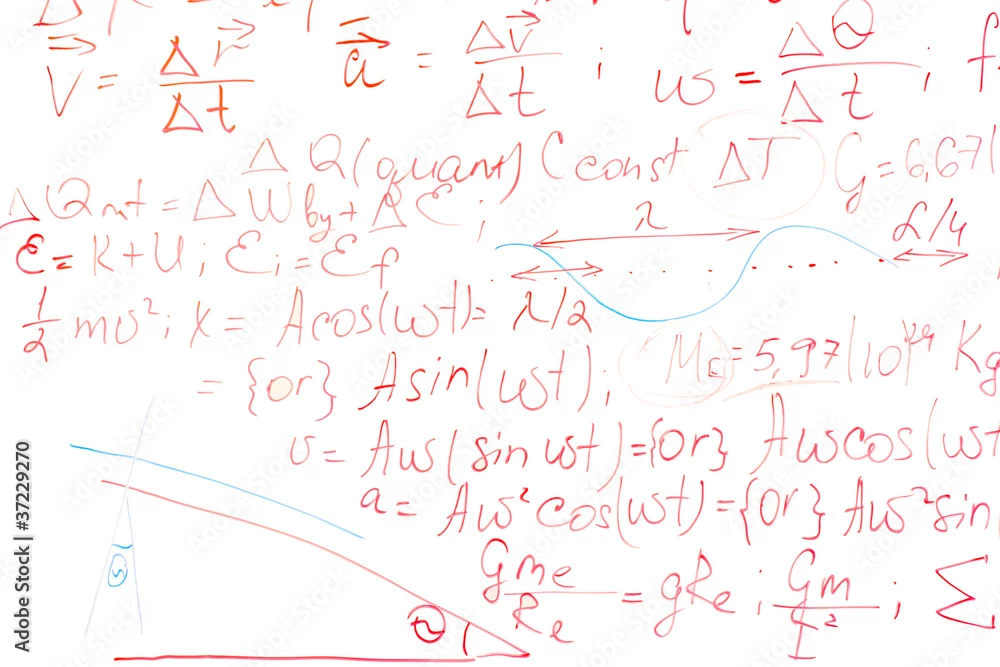 V⃗ = Δr⃗/Δt a⃗ = Δv⃗/Δt ; ω = ΔΘ/Δt ; f
ΔQ(quant) C const ΔT G = 6,67(
ΔQ = ΔW by + ΔE ;
λ
ℰ = K + U ; ℰi = ℰf
L/4
1/2 mυ² ; x = Acos(ωt) = λ/2
= {or} Asin(ωt) ; M = 5,97(10 Kg
υ = Aω(sin ωt) = {or} Aωcos(ωt
a = Aω²cos(ωt) = {or} Aω²sin
Gme/Re = gRe ; Gm/r² ; Σ
Θ
Adobe Stock | #37229270